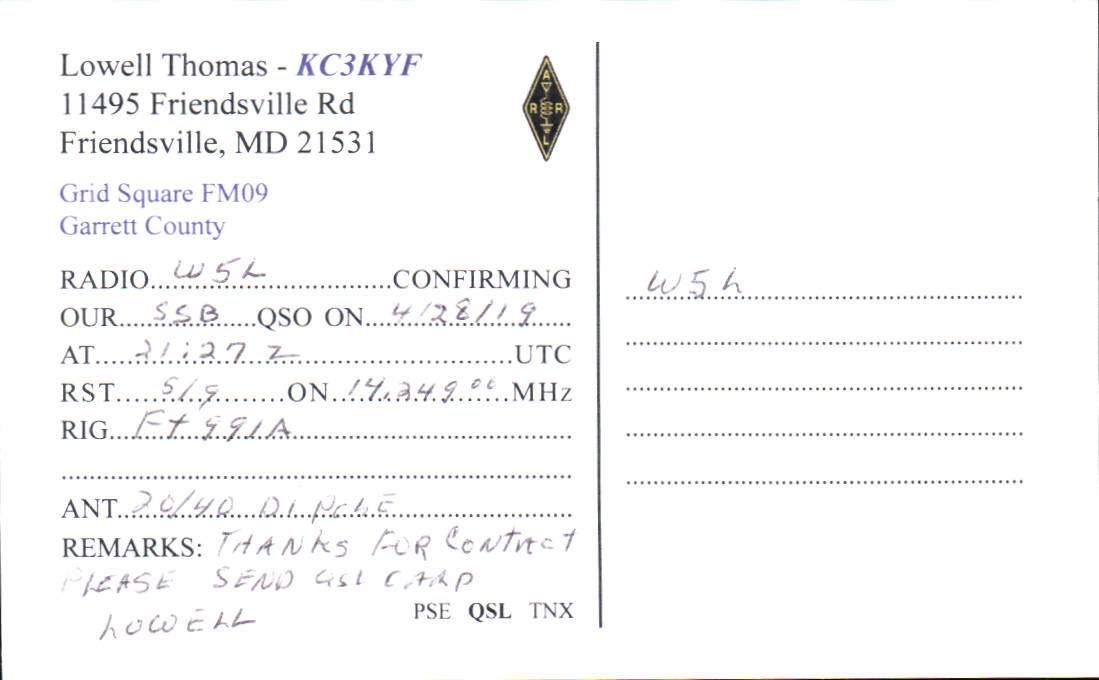 Lowell Thomas - KC3KYF
11495 Friendsville Rd
Friendsville, MD 21531
ARRL
Grid Square FM09
Garrett County
RADIO W5L CONFIRMING
OUR SSB QSO ON 4/28/19
AT 21:27 Z UTC
RST 5/9 ON 14.349.00 MHz
RIG Ft 991A
ANT 20/40 DiPOLE
REMARKS: THANKS FOR CONTACT
PLEASE SEND QSL CARD
LOWELL
PSE QSL TNX
W5L